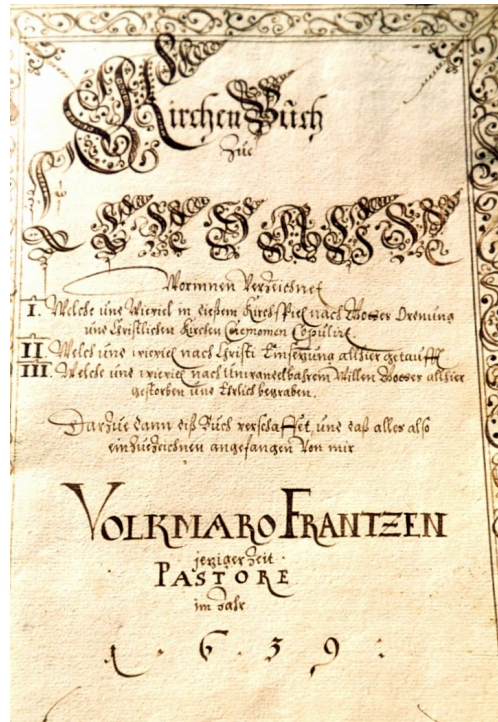 Kirchen Buch
Zue
Worinnen Verzeichnet
I. Welche und Wieviel in dießem Kirchspiel nach Gottes Ordnung
und Christlichen Kirchen Ceremonien Copulirt
II Welch und wieviel nach Christi Einsetzung allhier getaufft
III. Welche und wieviel nach Unwandelbahrem Willen Gottes allhier
gestorben und Ehrlich begraben.
Darzue dann diß Buch verschaffet, und daß alles also
einzuezeichnen angefangen Von mir
VOLKMARO FRANTZEN
jeziger Zeit
PASTORE
im Jahr
1 . 6 . 3 9 :